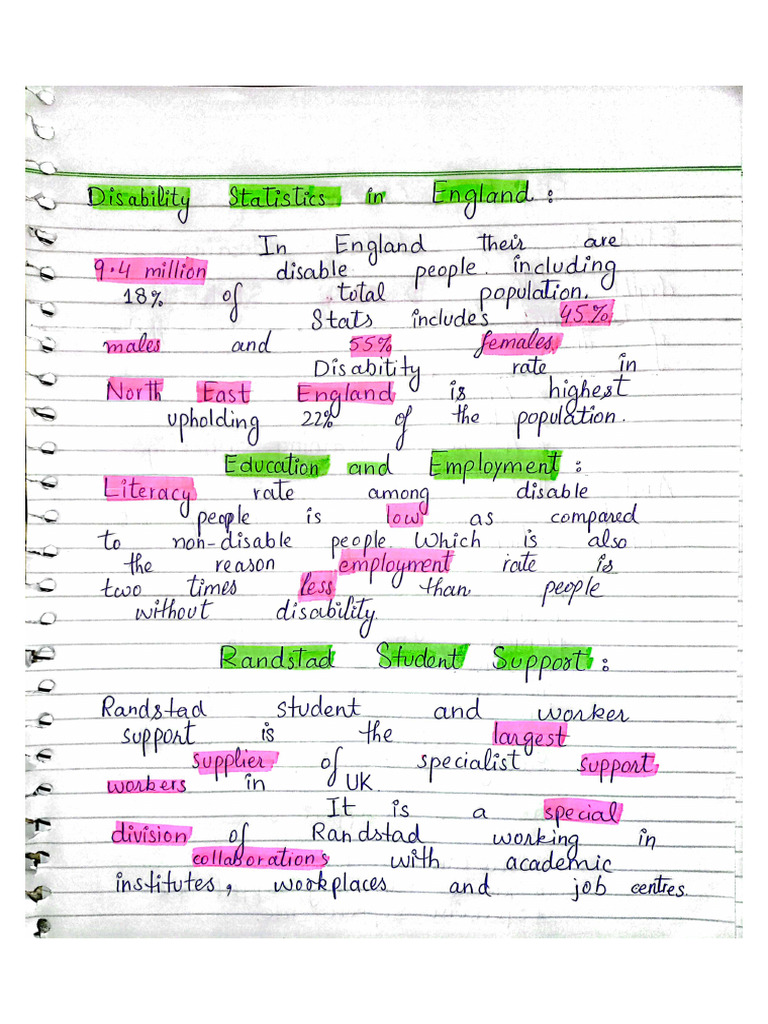 Disability Statistics in England :
In England their are
9.4 million disable people including
18% of total population.
Stats includes 45%
males and 55% females.
Disabitity rate in
North East England is highest
upholding 22% of the population.
Education and Employment :
Literacy rate among disable
people is low as compared
to non-disable people. Which is also
the reason employment rate is
two times less than people
without disability.
Randstad Student Support :
Randstad student and worker
support is the largest
supplier of specialist support
workers in UK.
It is a special
division of Randstad working in
collaborations with academic
institutes, workplaces and job centres.